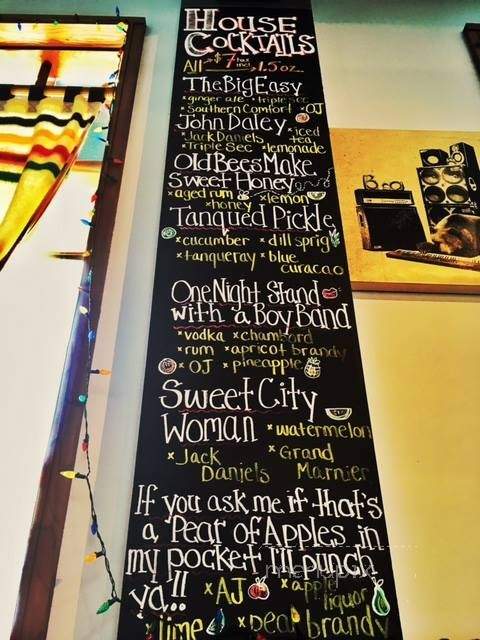 House
Cocktails
All $7 tax incl. 1.5oz.
The Big Easy
* ginger ale * triple sec
* Southern Comfort * OJ
John Daley
* iced tea
* Jack Daniels
* Triple Sec * lemonade
Old Bees Make
Sweet Honey
* aged rum * lemon
* honey
Tanqued Pickle
* cucumber * dill sprig
* tanqueray * blue
curacao
One Night Stand
with a Boy Band
* vodka * chambord
* rum * apricot brandy
* OJ * pineapple
Sweet City
Woman
* watermelon
* Jack
Daniels
* Grand
Marnier
If you ask me if that's
a Pear of Apples in
my pocket I'll punch
ya!!
* AJ * apple
liquor
* lime * pear brandy